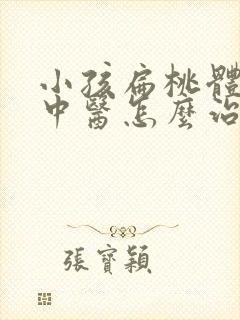 小孩扁桃體
中醫怎麼治
張寶穎